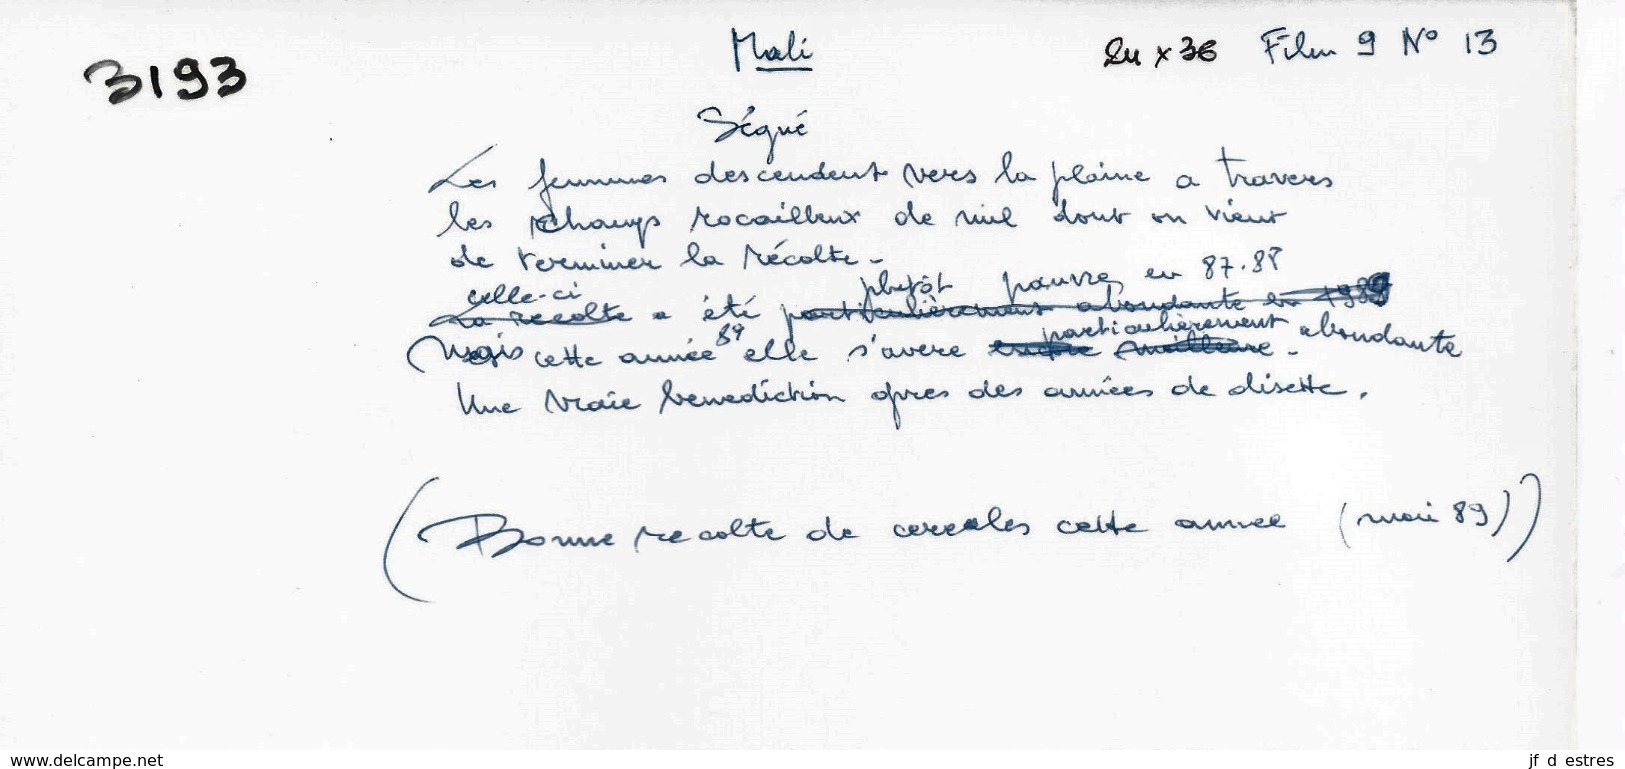 3193
Mali
24 x 36 Film 9 N° 13
Ségué
Les femmes descendent vers la plaine a travers
les champs rocailleux de mil dont on vient
de terminer la récolte -
celle-ci plutôt pauvre en 87.88
La recolte a été particulièrement abondante en 1989
89 particulièrement abondante
Mais cette année elle s'avere encore meilleure -
Une vraie benediction apres des années de disette.
(Bonne recolte de cereales cette annee (mai 89))
www.delcampe.net
jf d estres